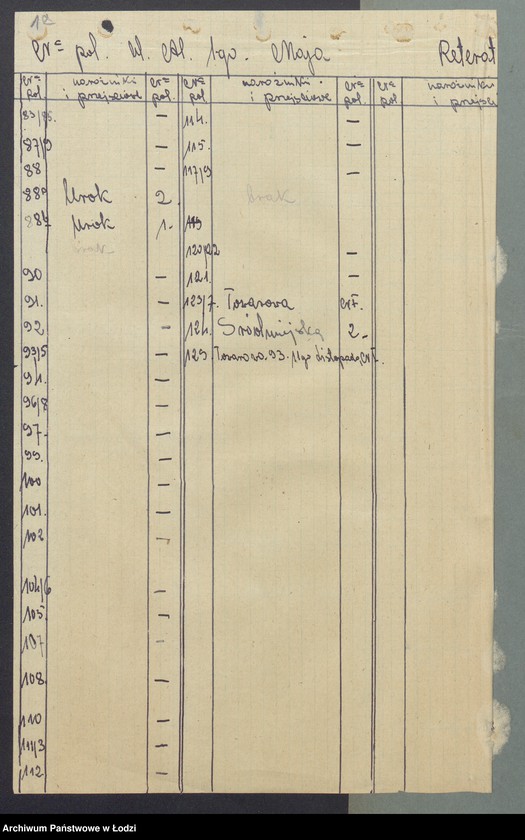 12
Nr pol. Ul. Al. 1-go. Maja Referat
Nr pol. narożniki i przejściowe Nr pol. Nr pol. narożniki i przejściowe Nr pol. Nr pol. narożniki i przejści
83/85. — 114. —
87/9 — 115. —
88 — 117/9 —
88a Urok 2. brak
88b Urok 1. 119
brak 120/22 —
90 — 121. —
91. — 123/7. Towarowa Nr 7.
92 — 124. Śródmiejska 2.
93/5 — 129. Towarowa. 93. 11go Listopada, Nr 1.
94. —
96/8 —
97. —
99. —
100 —
101. —
102 —
104/6 —
105. —
107 —
108 —
110 —
111/3 —
112 —
Archiwum Państwowe w Łodzi